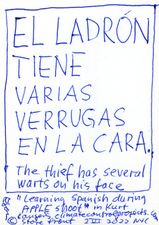 EL LADRÓN
TIENE
VARIAS
VERRUGAS
EN LA CARA.
The thief has several
warts on his face
"Learning Spanish during
APPLE shoot" in Kurt
climatecontrolprojects.
© Stote Prout VIII 2022 NYC